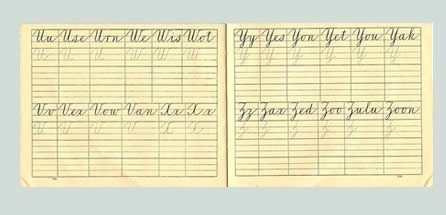 Uu Use Urn We Wis Wot
U U U W W W
Vv Vex Vow Van Xx Xx
V V V V X X
Yy Yes Yon Yet You Yak
Y Y Y Y Y Y
Zz Zax Zed Zoo Zulu Zoon
Z Z Z Z Z Z